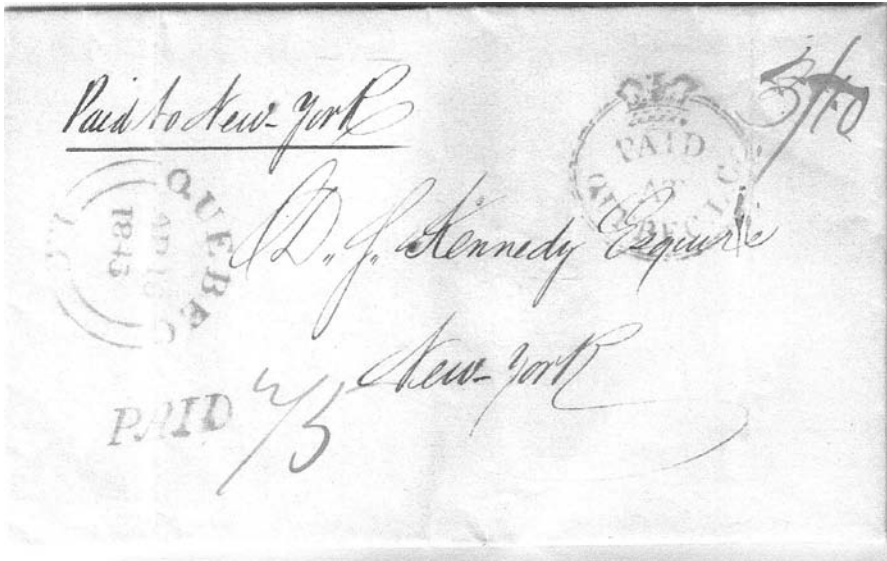 Paid to New-York
3/10
PAID
AT
QUEBEC L.C.
QUEBEC
AP 13
1843
D. J. Kennedy Esquire
New-York
PAID